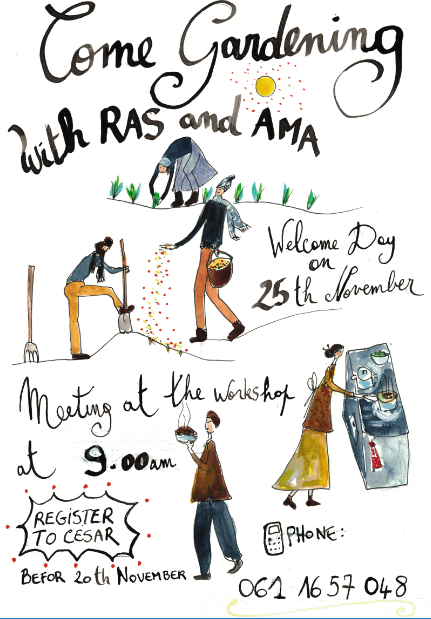 Come Gardening
with RAS and AMA
Welcome Day
on
25th November
Meeting at the workshop
at 9.00am
REGISTER
TO CESAR
BEFOR 20th NOVEMBER
PHONE:
061 16 57 048